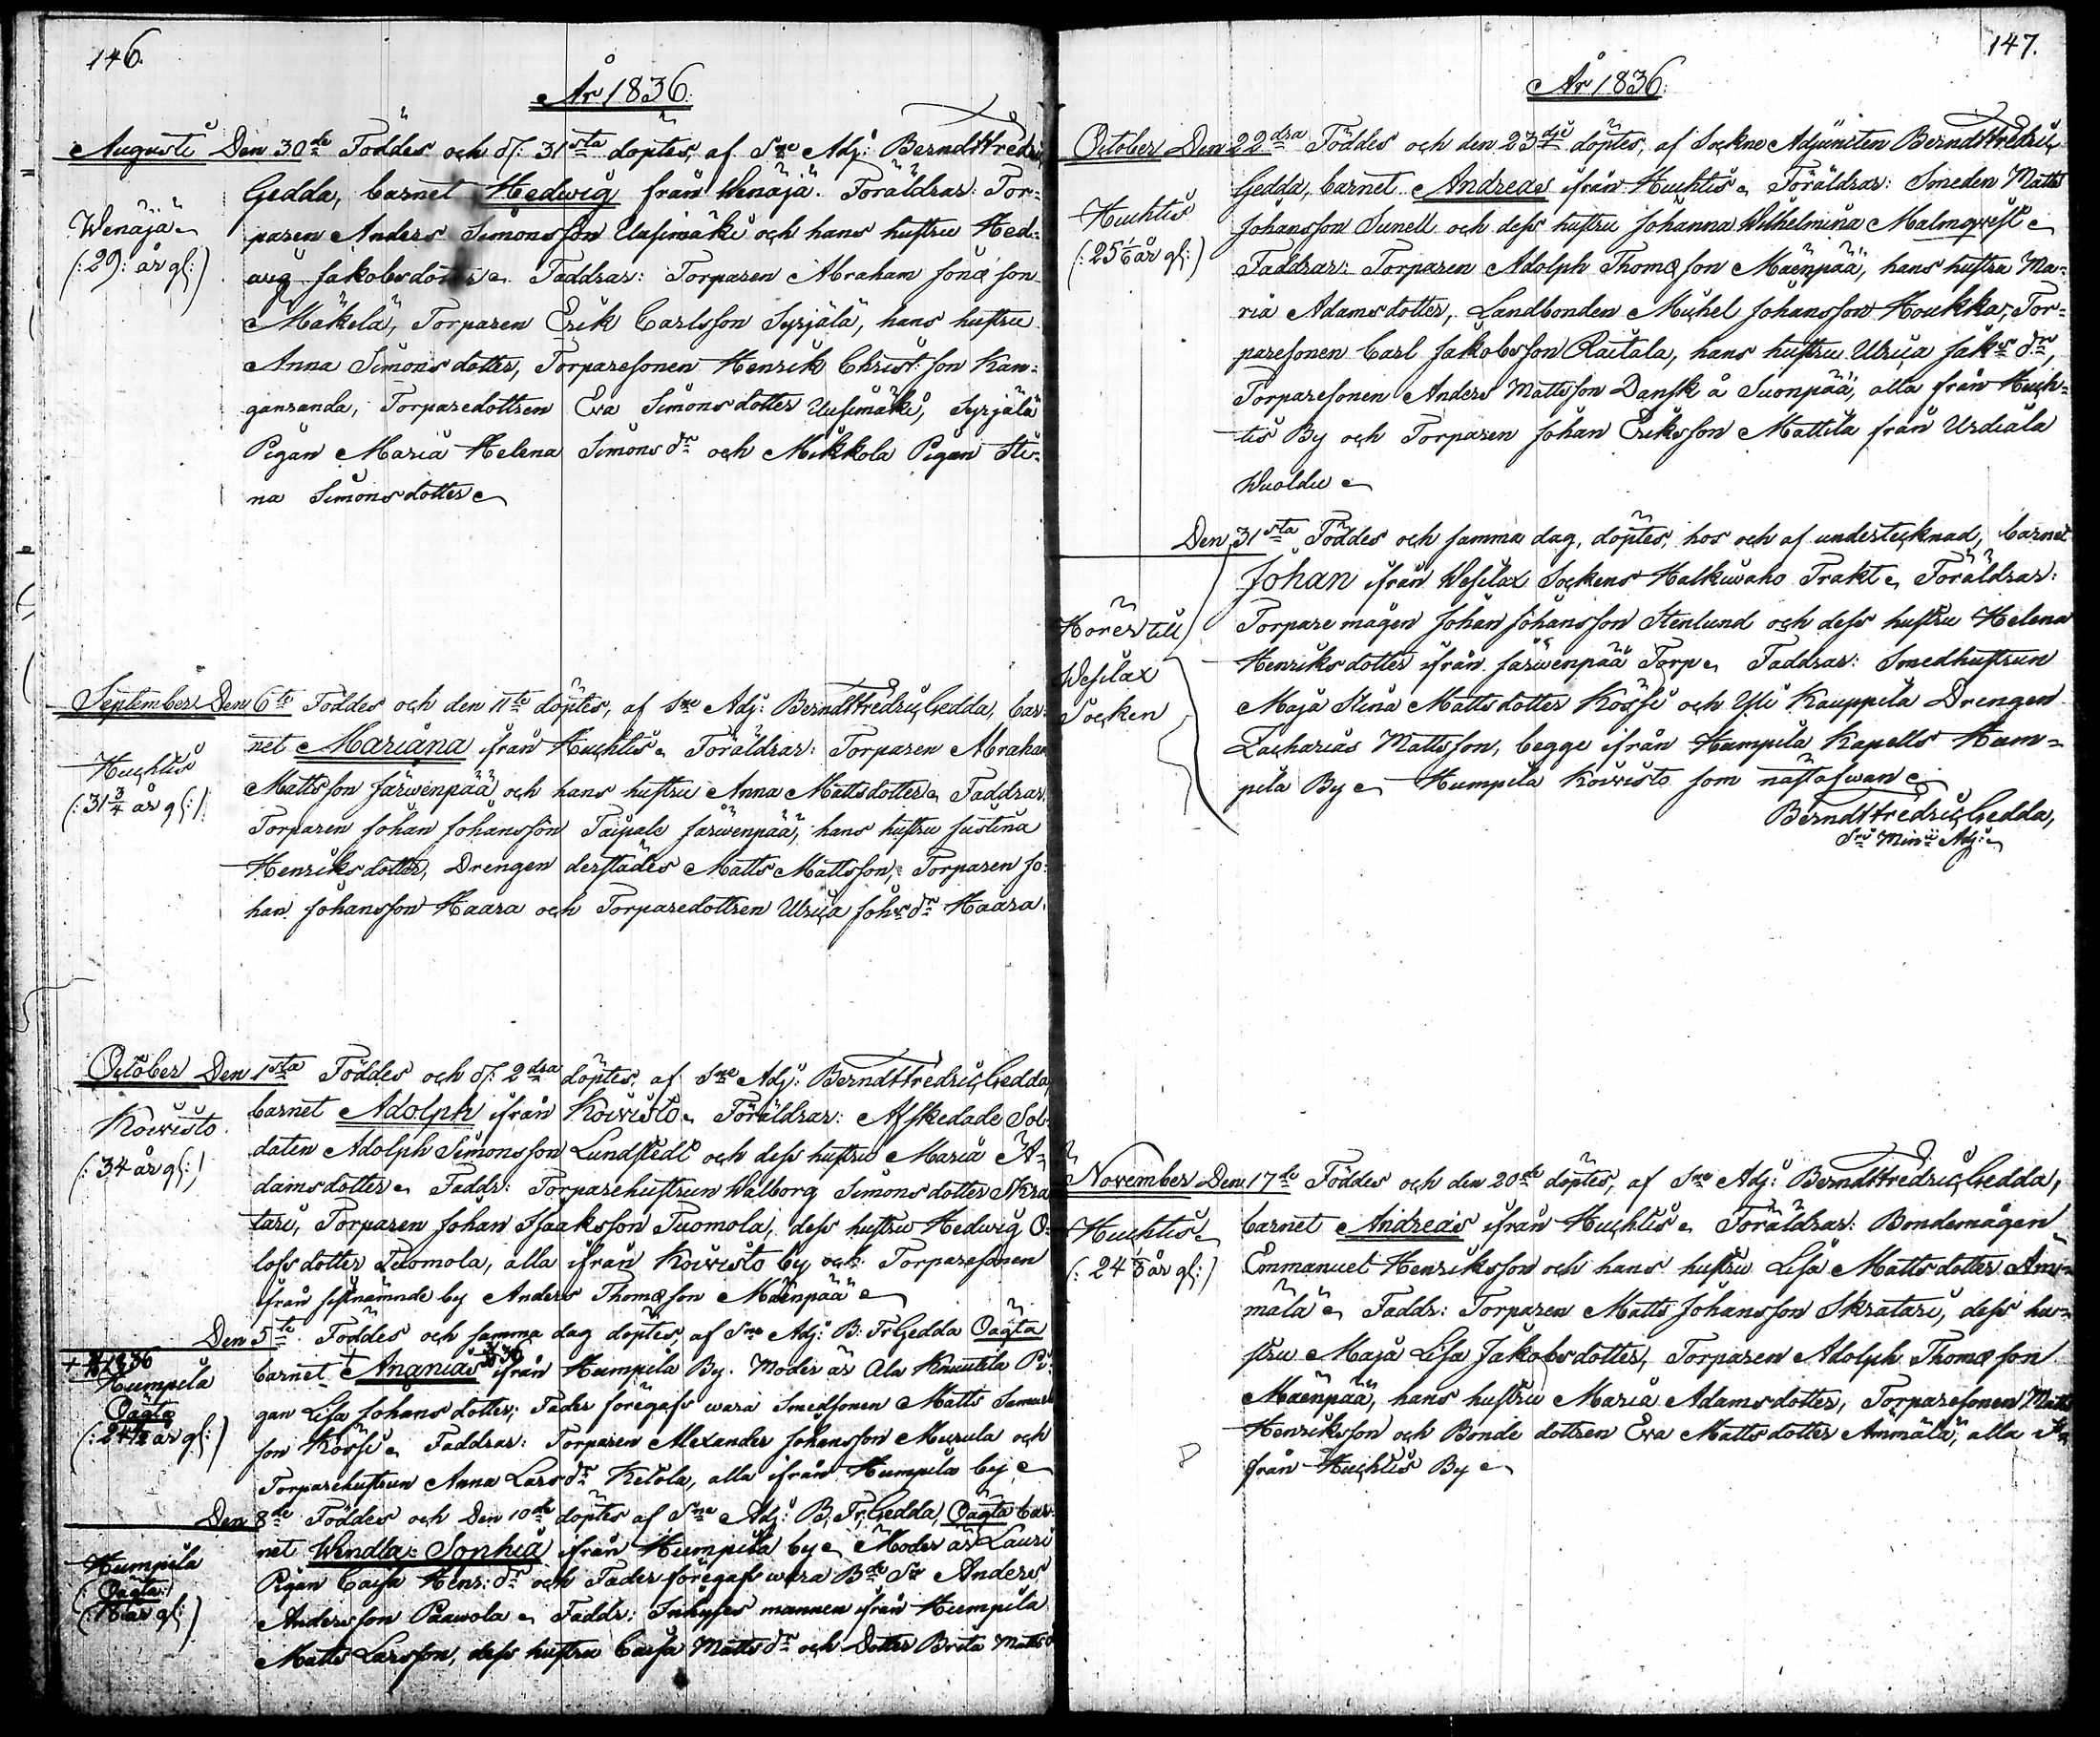 146.
År 1836.
Augusti Den 30de Föddes och d. 31sta döptes, af Sne Adj: Berndt Fredric
Gedda, barnet Hedwig från Wenäjä. Föräldrar: Tor-
Wenäjä
paren Anders Simonsson Uusimäki och hans hustru Hed-
(: 29: år gl:)
wig Jakobsdotter. Faddrar: Torparen Abraham Jonæ son
Mäkelä, Torparen Erik Carlsson Syrjälä, hans hustru
Anna Simonsdotter, Torparesonen Henrik Christ: son Kan-
gansanda, Torparedottren Eva Simonsdotter Uusimäki, Syrjälä
Pigan Maria Helena Simons dr och Mikkola Pigan Sti-
na Simonsdotter
September Den 6te Föddes och den 11te döptes, af Sne Adj: Berndt Fredric Gedda, bar-
net Mariana ifrån Huchtis. Föräldrar: Torparen Abraham
Huchtis
Mattsson Järwenpää och hans hustru Anna Mattsdotter. Faddrar:
(: 31 3/4 år gl:)
Torparen Johan Johansson Taipale Järwenpää, hans hustru Justina
Henriksdotter, Drengen derstädes Matts Mattsson, Torparen Jo-
han Johansson Haara och Torparedottren Ulrica Johs dr Haara.
October Den 1sta Föddes och d. 2dra döptes, af Sne Adj: Berndt Fredric Gedda,
barnet Adolph ifrån Koivisto. Föräldrar: Afskedade Sol-
Koivisto
daten Adolph Simonsson Lundstedt och dess hustru Maria A-
(: 34 år gl:)
damsdotter. Faddr: Torparehustrun Walborg Simonsdotter Skra-
tari, Torparen Johan Isaaksson Tuomola, dess hustru Hedwig O-
lofsdotter Tuomola, alla ifrån Koivisto by och Torparesonen
ifrån sistnämnde by Anders Thomæson Mäenpää
Den 5te Föddes och samma dag döptes, af Sne Adj: B: Fr Gedda Oägta
barnet Ananias ifrån Humpila By. Moder är Ala Knuutila Pi-
Humpila
Oägta
gan Lisa Johansdotter; Fader föregafs wara Smedsonen Matts Samuels
(: 24 1/2 år gl:)
son Kössi. Faddrar: Torparen Alexander Johansson Murula och
Torparehustrun Anna Lars dr Ketola, alla ifrån Humpila by
Den 8de Föddes och Den 10de döptes af Sne Adj: B: Fr: Gedda, Oägta bar-
net Wendla Sophia ifrån Humpila by. Moder är Lauri
Humpila
(Oägta:)
Pigan Caisa Henr: dr och Fader föregafs wara Bde Sn Anders
Andersson Paawola. Faddr: Inhyses mannen ifrån Humpila
Matts Larsson, dess hustru Caisa Matts dr och Dotter Brita Matts d
147.
År 1836.
October Den 22dra Föddes och den 23dje döptes, af Sockne Adjuncten Berndt Fredric
Gedda, barnet Andreas ifrån Huchtis. Föräldrar: Smeden Matts
Huchtis
Johansson Sunell och dess hustru Johanna Wilhelmina Malmqwist
(: 25 1/6 år gl:)
Faddrar: Torparen Adolph Thomæson Mäenpää, hans hustru Ma-
ria Adamsdotter, Landbonden Michel Johansson Houkka, Tor-
paresonen Carl Jakobsson Raitala, hans hustru Ulrica Jaks dr,
Torparesonen Anders Mattsson Dansk å Suonpää, alla från Huch-
tis By och Torparen Johan Eriksson Mattila från Urdiala
Wuoldu
Den 31sta Föddes och samma dag, döptes, hos och af undertecknad, barnet
Johan ifrån Wesilax Sockens Halkiwaho Trakt. Föräldrar:
Hörer till
Wesilax
Socken
Torpare mågen Johan Johansson Stenlund och dess hustru Helena
Henriksdotter ifrån Järwenpää Torp. Faddrar: Smedhustrun
Maja Stina Mattsdotter Kössi och Yli Kauppila Drengen
Zacharias Mattsson, begge ifrån Humpila Kapells Hum-
pila By. Humpila Koivisto som nästofwan
Berndt Fredric Gedda,
Sne Minii Adj:
November Den 17de Föddes och den 20de döptes, af Sne Adj: Berndt Fredric Gedda,
Huchtis
barnet Andreas ifrån Huchtis. Föräldrar: Bondemågen
(: 24 1/6 år gl:)
Emmanuel Henriksson och hans hustru Lisa Mattsdotter Äm-
mälä. Faddr: Torparen Matts Johansson Skratari, dess hu-
stru Maja Lisa Jakobsdotter, Torparen Adolph Thomæson
Mäenpää, hans hustru Maria Adamsdotter, Torparesonen Matts
Henriksson och Bonde dottren Eva Mattsdotter Ämmälä, alla i-
från Huchtis By